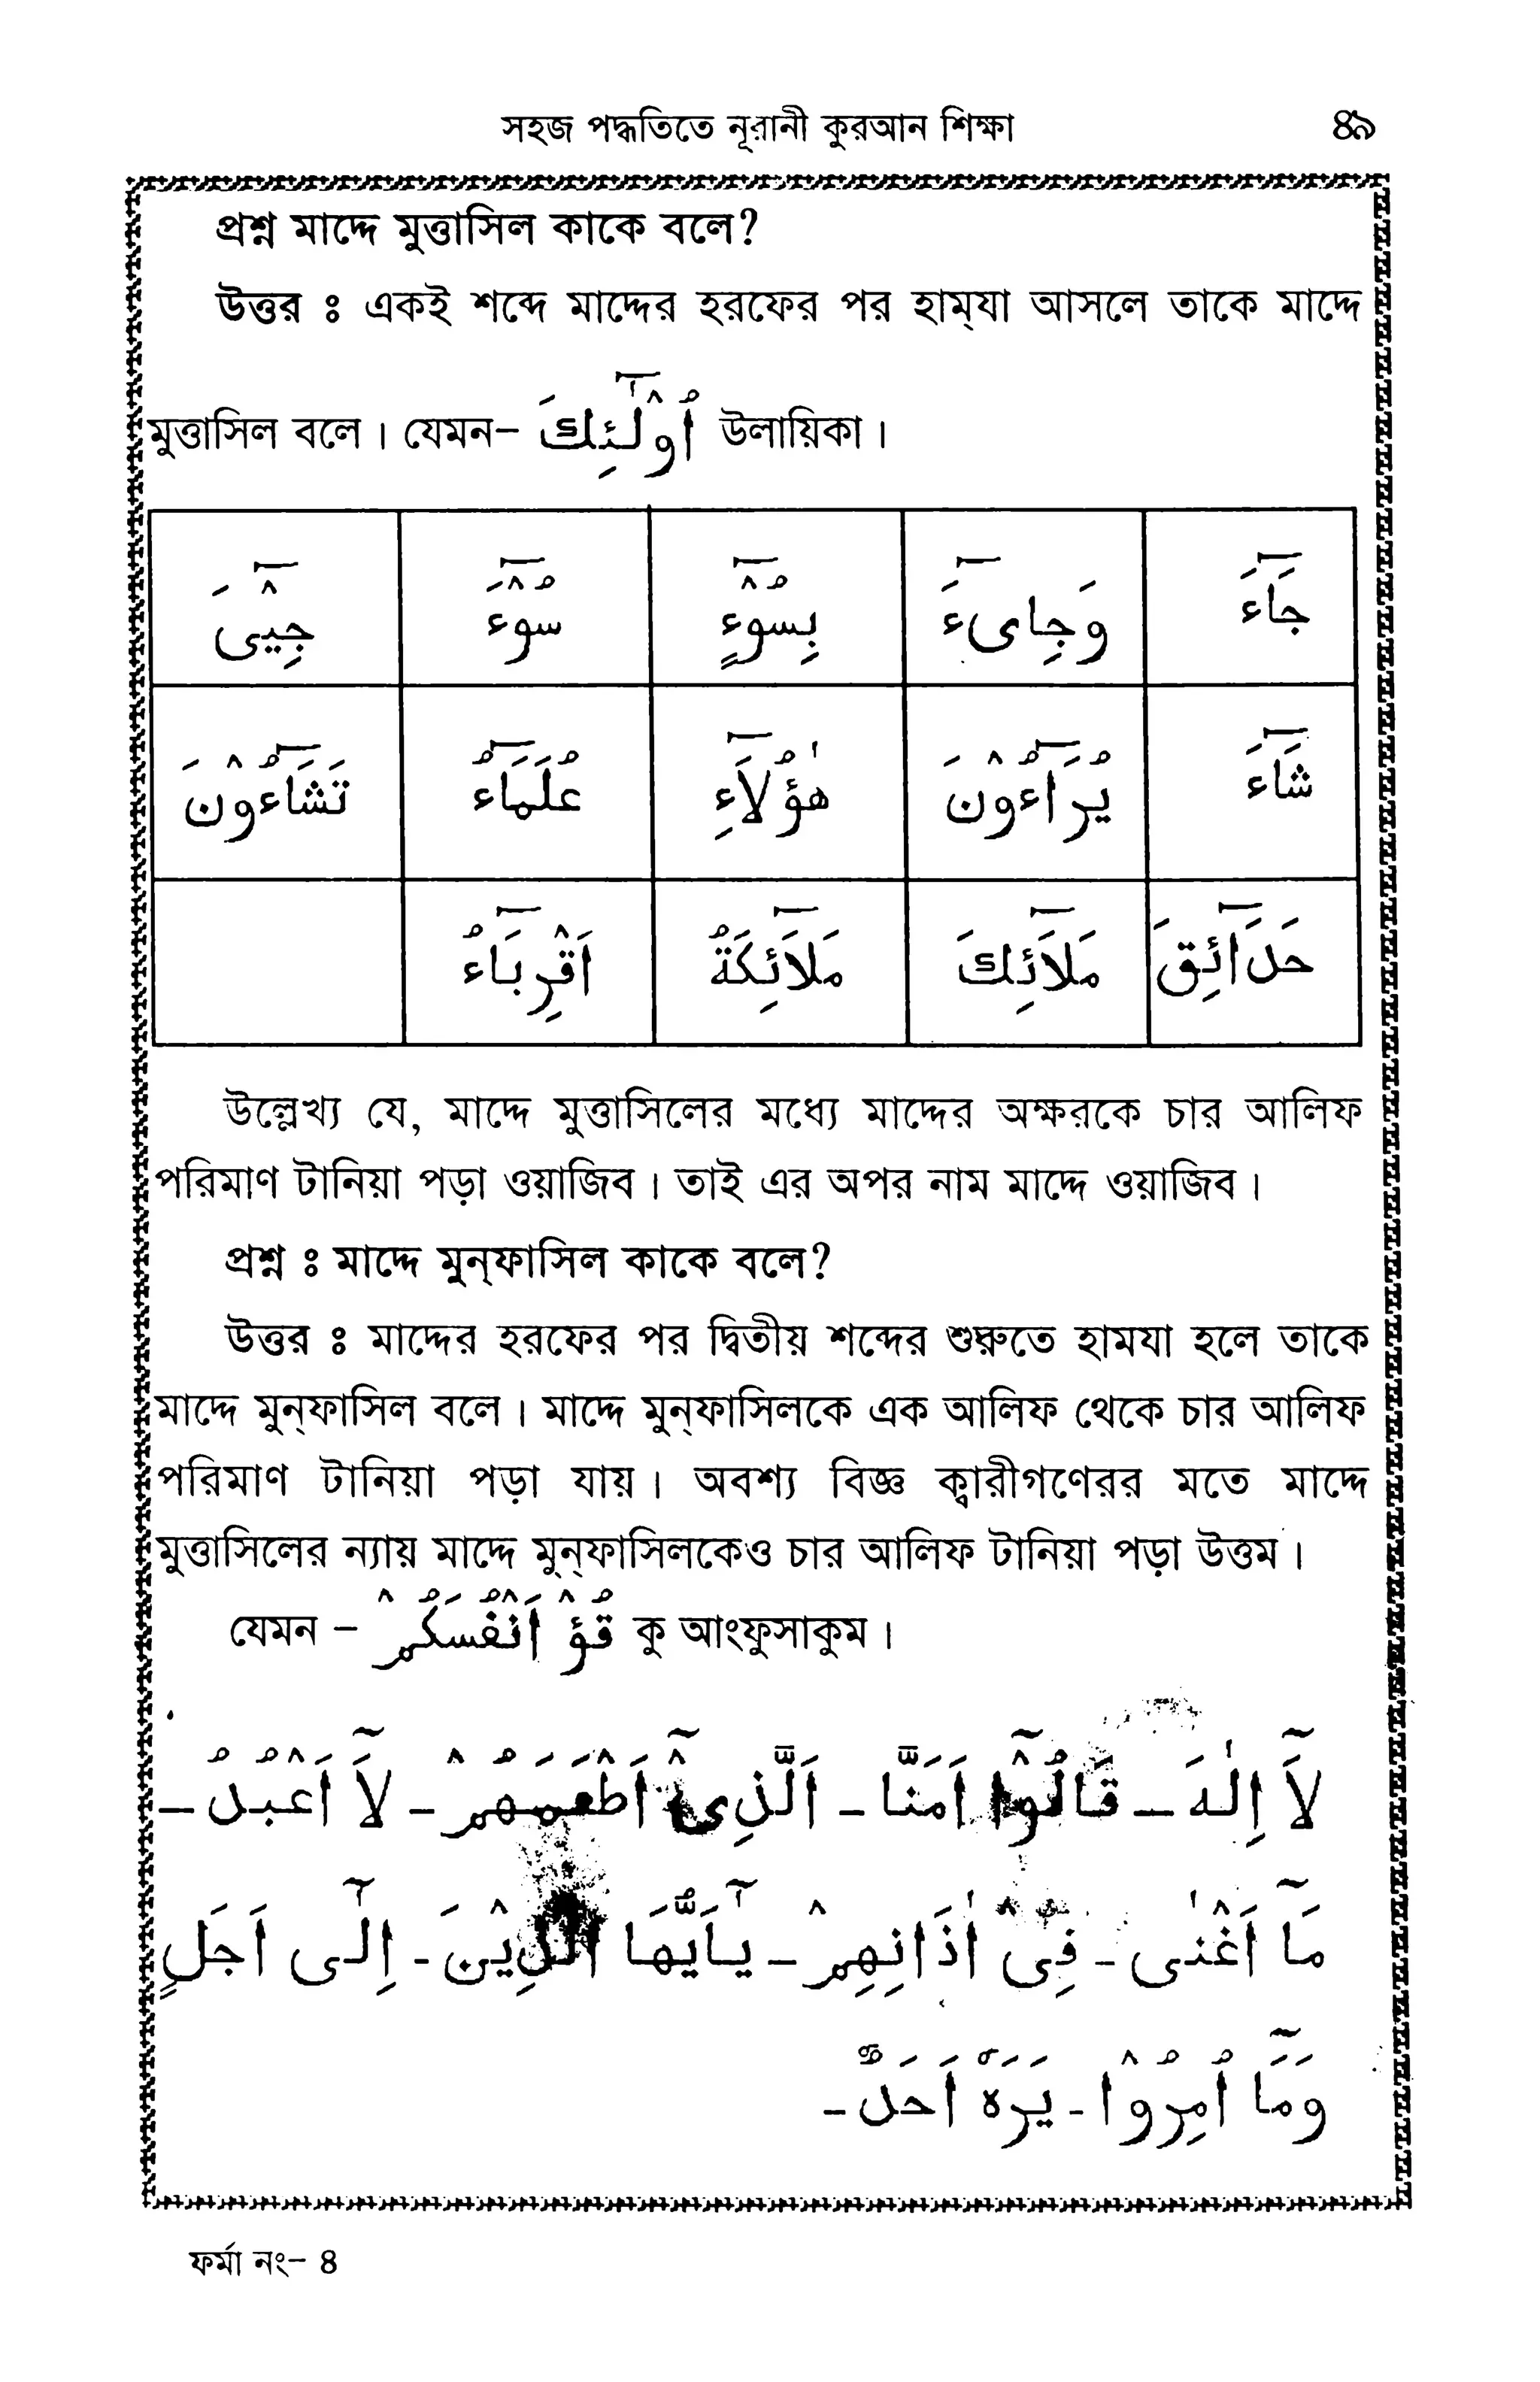 সহজ পদ্ধতিতে নূরানী কুরআন শিক্ষা ৪৯
প্রশ্ন মাদ্দে মুত্তাসিল কাকে বলে?
উত্তর ঃ একই শব্দে মাদ্দের হরফের পর হাম্‌যা আসলে তাকে মাদ্দে
মুত্তাসিল বলে। যেমন– اُولٰٓئِكَ উলায়িকা।
جَآءَ وَجِایٓءَ بِسُوْٓءٍ سُوْٓءَ جِیْٓیَ
شَآءَ یُرَآءُوْنَ هٰؤُلَآءِ عُلَمَآءُ تَشَآءُوْنَ
حَدَآئِقَ مَلَآئِكَ مَلَآئِكَةُ اَقْرِبَآءُ
উল্লেখ্য যে, মাদ্দে মুত্তাসিলের মধ্যে মাদ্দের অক্ষরকে চার আলিফ
পরিমাণ টানিয়া পড়া ওয়াজিব। তাই এর অপর নাম মাদ্দে ওয়াজিব।
প্রশ্ন ঃ মাদ্দে মুন্‌ফাসিল কাকে বলে?
উত্তর ঃ মাদ্দের হরফের পর দ্বিতীয় শব্দের শুরুতে হামযা হলে তাকে
মাদ্দে মুন্‌ফাসিল বলে। মাদ্দে মুন্‌ফাসিলকে এক আলিফ থেকে চার আলিফ
পরিমাণ টানিয়া পড়া যায়। অবশ্য বিজ্ঞ ক্বারীগণেরর মতে মাদ্দে
মুত্তাসিলের ন্যায় মাদ্দে মুন্‌ফাসিলকেও চার আলিফ টানিয়া পড়া উত্তম।
যেমন – قُوْٓ اَنْفُسَكُمْ কু আংফুসাকুম।
لَآ اِلٰهَ – قَالُوْٓا اٰمَنَّا – اَلَّذِیْٓ اَطْعَمَهُمْ – لَآ اَعْبُدُ –
مَآ اَغْنٰی – فِیْٓ اٰذَانِهِمْ – یٰٓاَیُّهَا الَّذِیْنَ – اِلٰٓی اَجَلٍ
وَمَآ اُمِرُوْا – یَرَهٗ اَحَدٌ –
ফর্মা নং– ৪